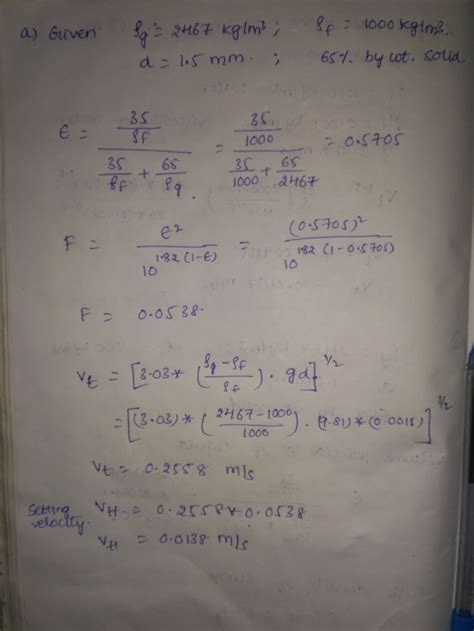 a) Given ρg = 2467 kg/m3 ; ρf = 1000 kg/m3.
d = 1.5 mm. ; 65% by wt. solid
ε = (35/ρf) / (35/ρf + 65/ρg) = (35/1000) / (35/1000 + 65/2467) = 0.5705
F = ε² / 10^1.82(1-ε) = (0.5705)² / 10^1.82(1-0.5705)
F = 0.0538.
Vt = [3.03* (ρg - ρf / ρf) . gd]^1/2
= [(3.03)* (2467-1000 / 1000) . (9.81)*(0.0015)]^1/2
Vt = 0.2558 m/s
Setting velocity. VH = 0.2558*0.0538
VH = 0.0138 m/s